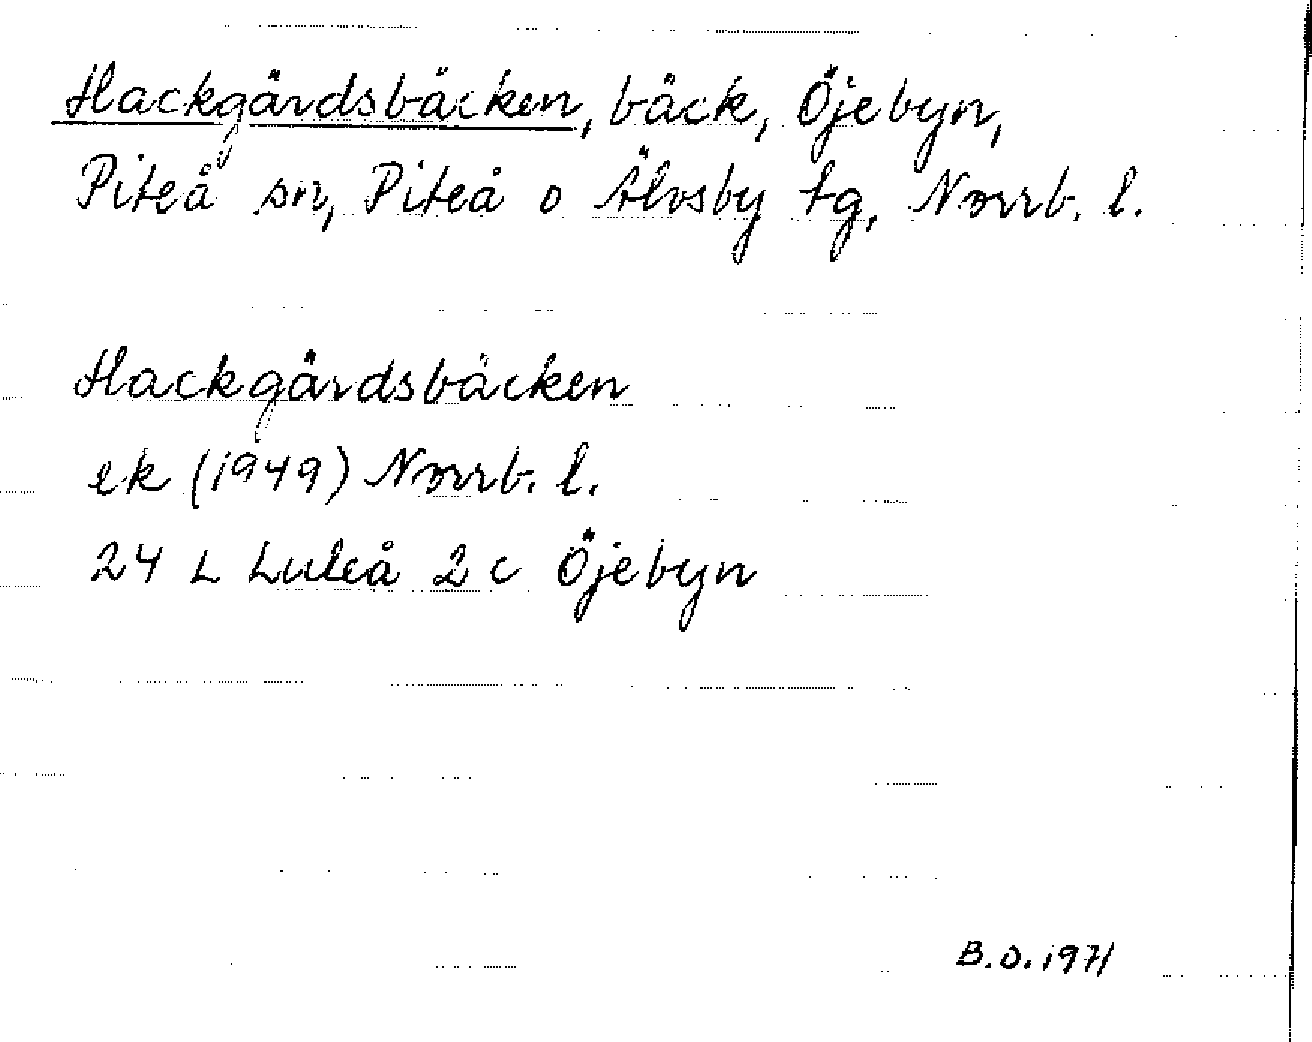 Hackgårdsbäcken, bäck, Öjebyn,
Piteå sn, Piteå o Älvsby tg, Norrb. l.
Hackgårdsbäcken
ek (1949) Norrb. l.
24 L Luleå 2 c Öjebyn
B.O. 1971